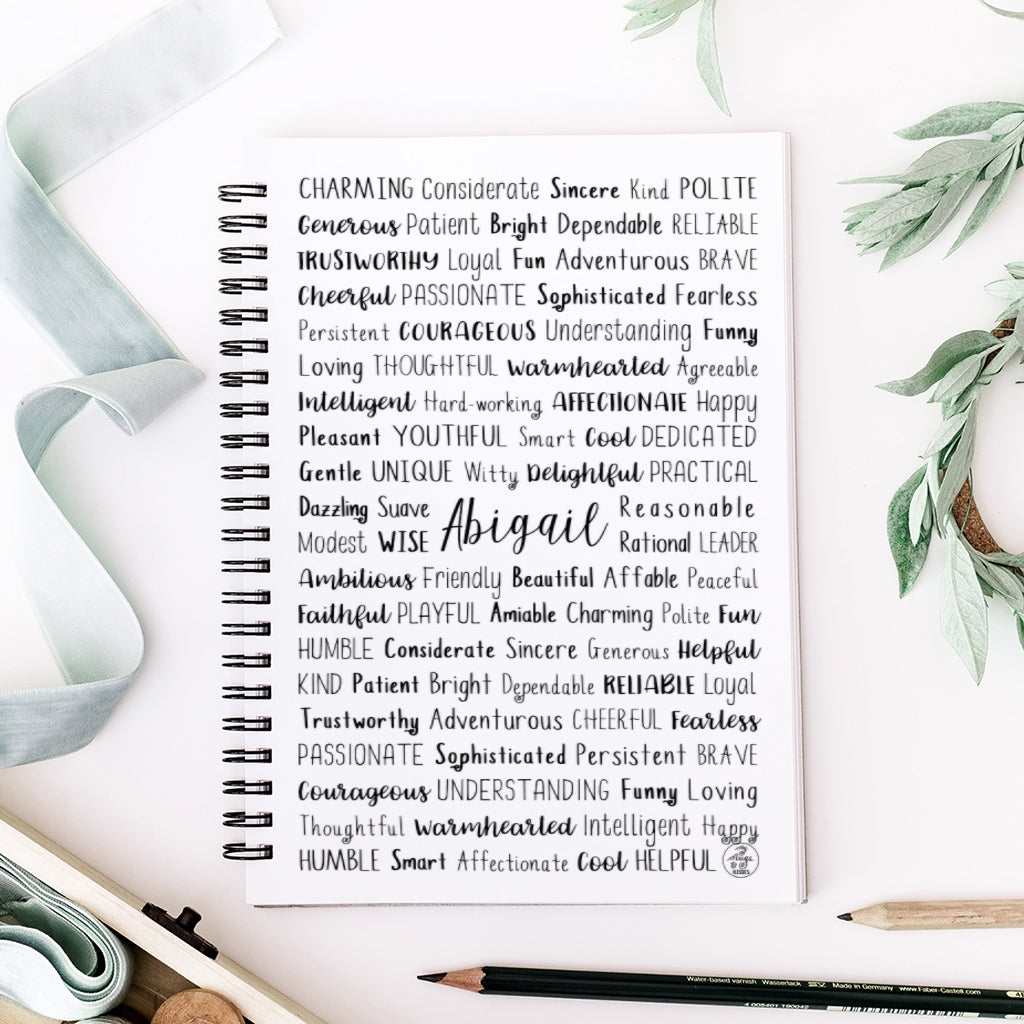 CHARMING Considerate Sincere Kind POLITE
Generous Patient Bright Dependable RELIABLE
TRUSTWORTHY Loyal Fun Adventurous BRAVE
Cheerful PASSIONATE Sophisticated Fearless
Persistent COURAGEOUS Understanding Funny
Loving THOUGHTFUL Warmhearted Agreeable
Intelligent Hard-working AFFECTIONATE Happy
Pleasant YOUTHFUL Smart Cool DEDICATED
Gentle UNIQUE Witty Delightful PRACTICAL
Dazzling Suave
Modest WISE
Abigail
Reasonable
Rational LEADER
Ambitious Friendly Beautiful Affable Peaceful
Faithful PLAYFUL Amiable Charming Polite Fun
HUMBLE Considerate Sincere Generous Helpful
KIND Patient Bright Dependable RELIABLE Loyal
Trustworthy Adventurous CHEERFUL Fearless
PASSIONATE Sophisticated Persistent BRAVE
Courageous UNDERSTANDING Funny Loving
Thoughtful Warmhearted Intelligent Happy
HUMBLE Smart Affectionate Cool HELPFUL
KISSES
Water-based varnish Wasserlack Made in Germany www.Faber-Castell.com
4 005401 190042